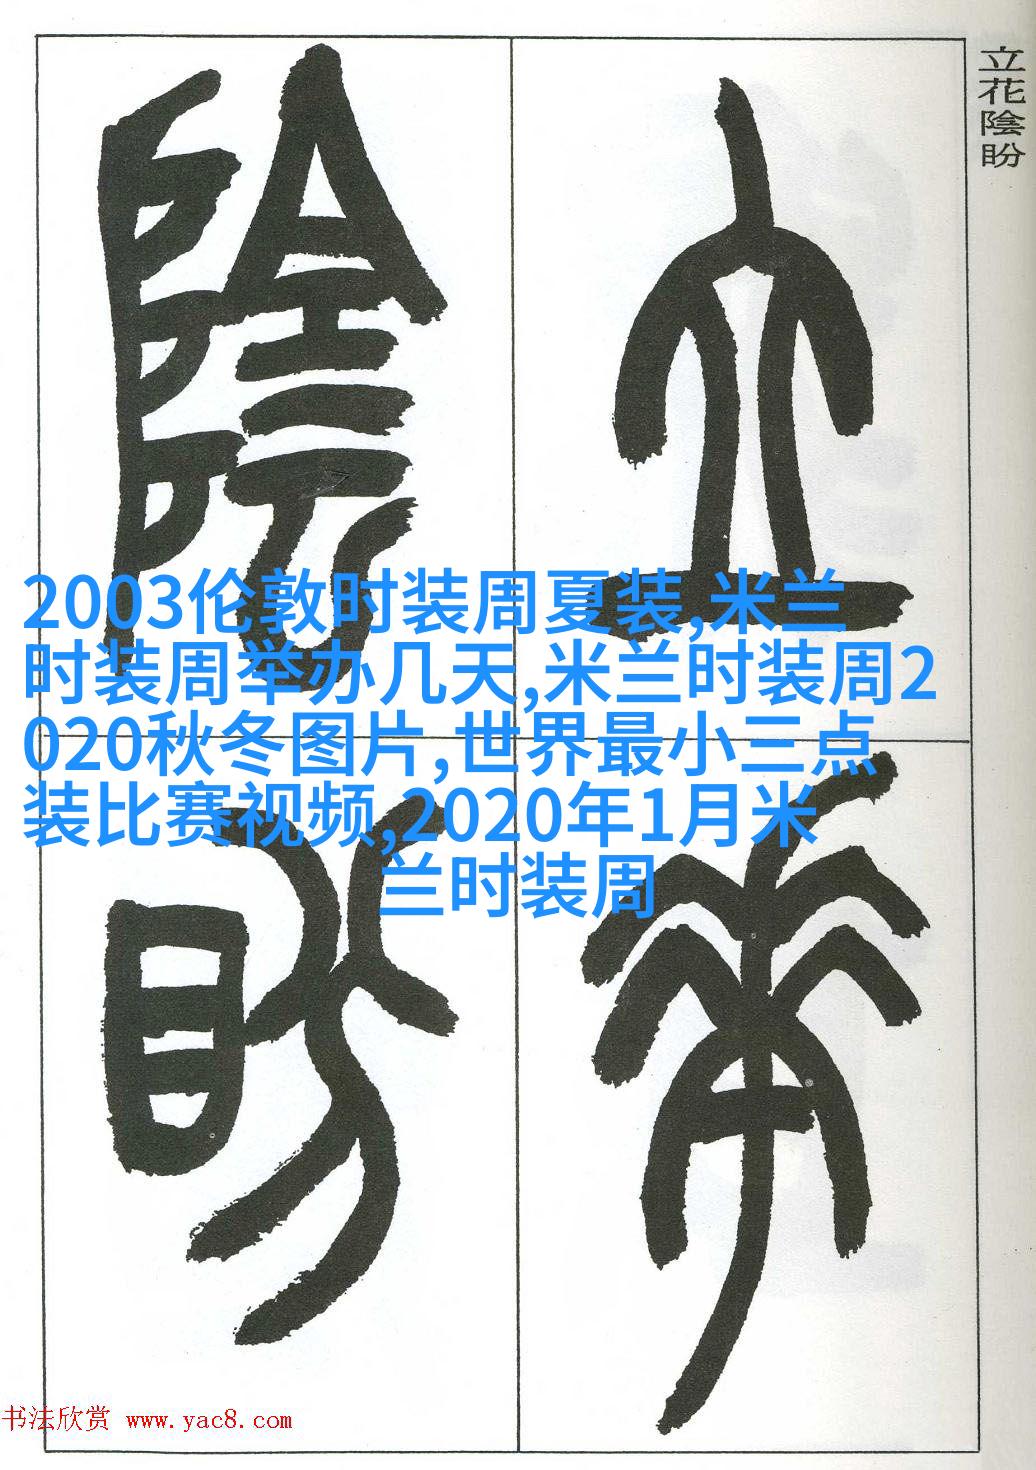 立花陰盼
立
花
陰
盼
2003伦敦时装周夏装,米兰
时装周举办几天,米兰时装周2
020秋冬图片,世界最小三点
装比赛视频,2020年1月米
兰时装周
书法欣赏 www.yac8.com